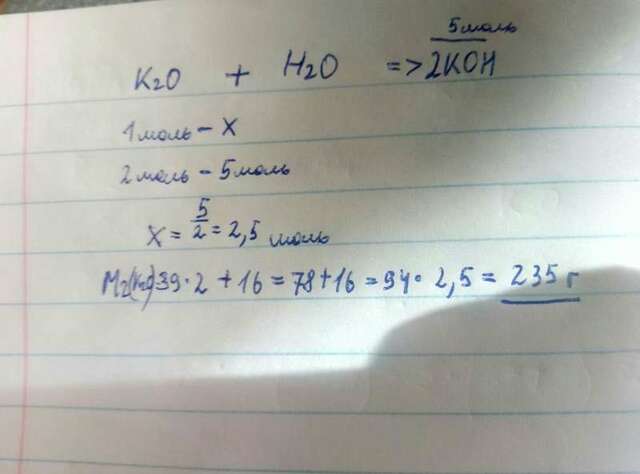 5 моль
K2O + H2O => 2KOH
1 моль – X
2 моль – 5 моль
X = 5/2 = 2,5 моль
M2(K2O)39·2 + 16 = 78+16 = 94· 2,5 = 235 г